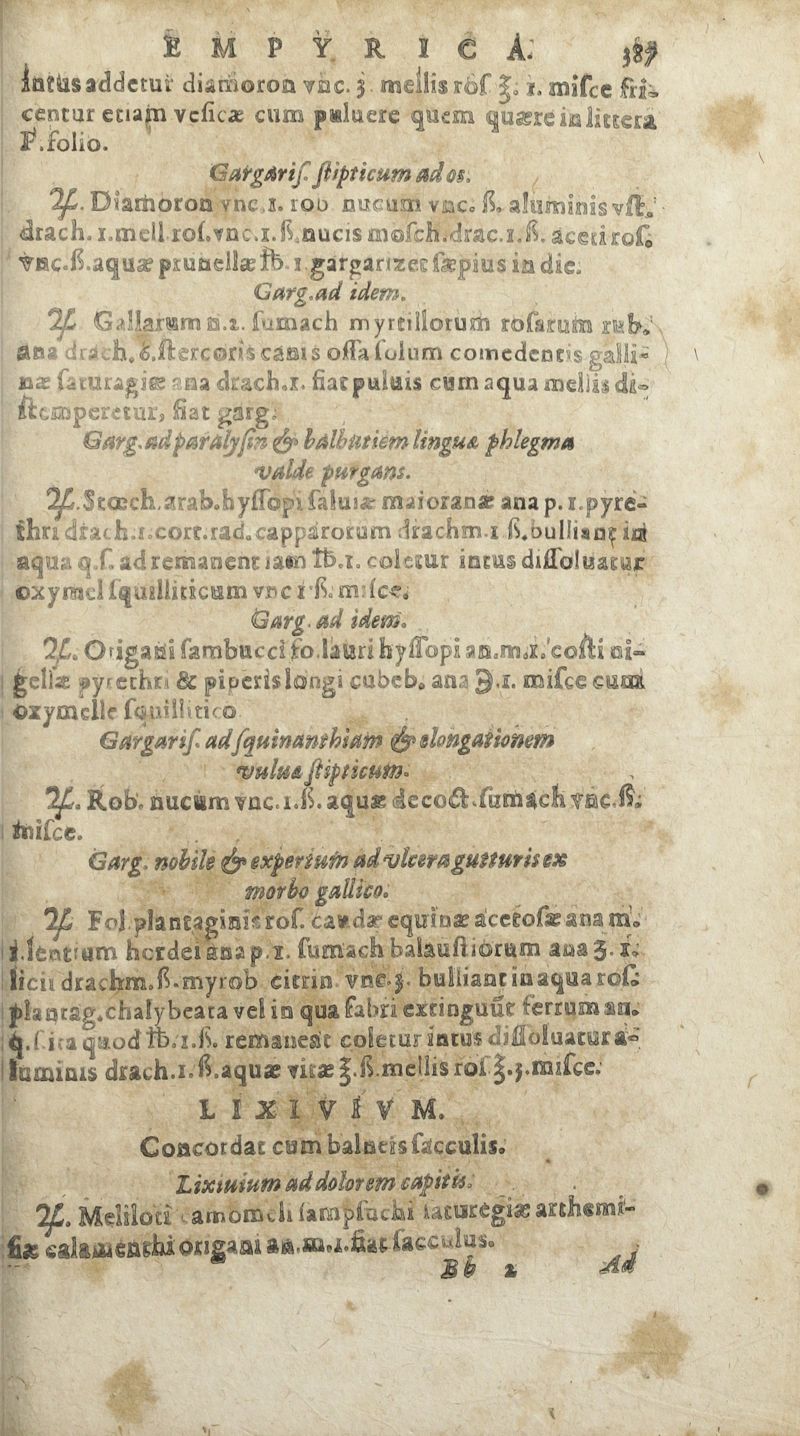 EMPYRICA. 387
intus addetur diamoron vnc. 3 mellis rof ℥. 1. mifce fri-
centur etiam veficæ cum puluere quem quære in littera
P. folio.
Gargarif. ftipticum ad os.
℞. Diamoron vnc. 1. rob nucum vnc. ß. aluminis vft.
drach. 1. mell rof. vnc. 1. ß. nucis mofch. drac. 1. ß. aceti rof.
vnc. ß. aquæ prunellæ ℔ 1 gargarizet fæpius in die.
Garg. ad idem.
℞ Gallarum n. 2. fumach myrtillorum rofarum rub.
ana drach. 6. ftercoris canis offa folum comedentis galli-
næ faturagiæ ana drach. 1. fiat puluis cum aqua mellis di-
ftemperetur, fiat garg.
Garg. ad paralyfin & balbutiem linguæ phlegma
valde purgans.
℞. Stœch. arab. hyffopi faluiæ maioranæ ana p. 1. pyre-
thri drach. 1. cort. rad. capparorum drachm. 1 ß. bulliant in
aqua q. f. ad remanentiam ℔. 1. coletur intus diffoluatur
oxymel fquilliticum vnc 1 ß. mifce.
Garg. ad idem.
℞. Origani fambucci fo. lauri hyffopi an. m. 1. cofti ni-
gellæ pyrethri & piperis longi cubeb. ana ℈. 1. mifce cum
oxymelle fquillitico
Gargarif. ad fquinanthiam & elongationem
vuluæ ftipticum.
℞. Rob. nucum vnc. 1. ß. aquæ decoct. fumach vnc. ß.
mifce.
Garg. nobile & expertum ad vlcera gutturis ex
morbo gallico.
℞ Fol plantaginis rof. caudæ equinæ acetofæ ana m.
1. lentium hordei ana p. 1. fumach balauftiorum ana ʒ. 1.
licii drachm. ß. myrob citrin. vnc. 3. bulliant in aqua rof.
plantag. chalybeata vel in qua fabri extinguūt ferrum an.
q. f ita quod ℔. 1. ß. remaneat coletur intus diffoluatur a-
luminis drach. 1. ß. aquæ vitæ ℥. ß. mellis rof ℥. 3. mifce.
LIXIVIVM.
Concordat cum balneis facculis.
Lixiuium ad dolorem capitis.
℞. Meliloti camomeli fampfuchi faturegiæ arthemi-
fiæ calamenthi origani an. m. 1. fiat facculus.
Bb 2 Ad